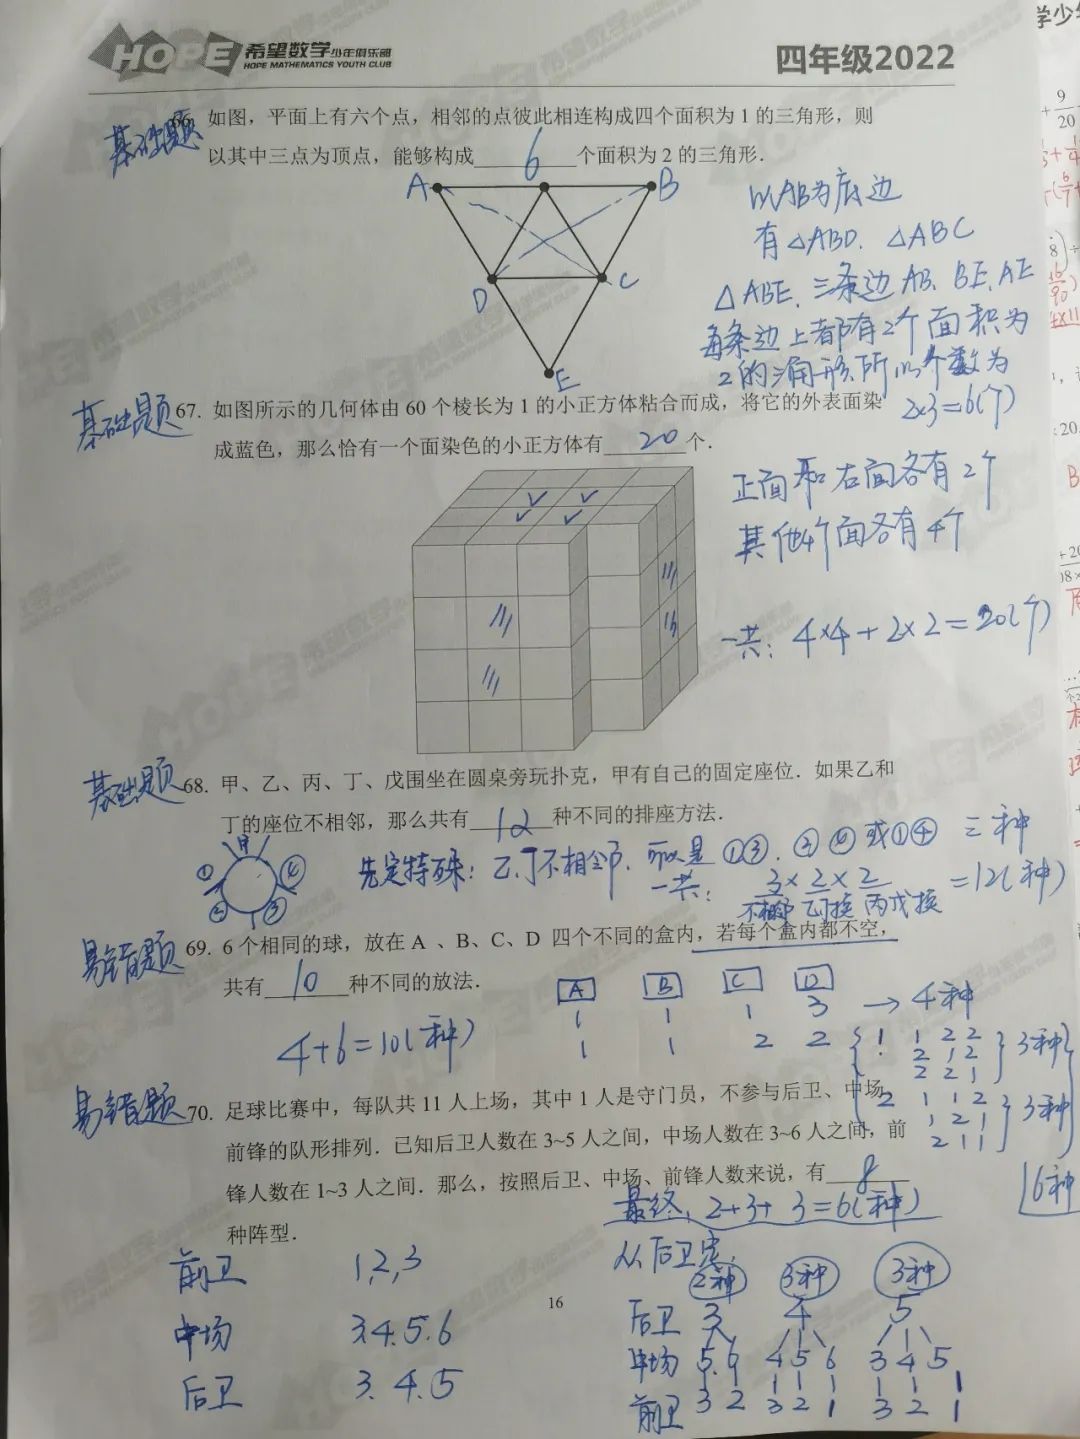 HOPE 希望数学少年俱乐部
HOPE MATHEMATICS YOUTH CLUB
四年级2022
基础题
66. 如图，平面上有六个点，相邻的点彼此相连构成四个面积为 1 的三角形，则
以其中三点为顶点，能够构成 6 个面积为 2 的三角形.
A
B
D
C
E
以AB为底边
有△ABD. △ABC
△ABE. 三条边 AB. BE. AE
每条边上都有2个面积为
2的三角形.所以个数为
2×3=6(个)
基础题
67. 如图所示的几何体由 60 个棱长为 1 的小正方体粘合而成，将它的外表面染
成蓝色，那么恰有一个面染色的小正方体有 20 个.
正面和右面各有2个
其他4个面各有4个
一共: 4×4+2×2=20(个)
基础题
68. 甲、乙、丙、丁、戊围坐在圆桌旁玩扑克，甲有自己的固定座位. 如果乙和
丁的座位不相邻，那么共有 12 种不同的排座方法.
甲
① ② ③ ④
先定特殊: 乙.丁不相邻. 可以是 ①③. ②④ 或①④ 三种
一共: 3×2×2=12(种)
不相邻 乙丁换 丙戊换
易错题
69. 6 个相同的球，放在 A 、B、C、D 四个不同的盒内，若每个盒内都不空，
共有 10 种不同的放法.
A B C D
1 1 1 3 → 4种
1 1 2 2
4+6=10(种)
1 1 2 2
2 1 2
2 2 1
3种
2 1 1 2
1 2 1
2 1 1
3种
6种
易错题
70. 足球比赛中，每队共 11 人上场，其中 1 人是守门员，不参与后卫、中场、
前锋的队形排列. 已知后卫人数在 3~5 人之间，中场人数在 3~6 人之间，前
锋人数在 1~3 人之间. 那么，按照后卫、中场、前锋人数来说，有 8
种阵型.
最终, 2+3+3=6(种)
前卫 1,2,3
中场 3.4.5.6
后卫 3.4.5
从后卫定,
2种 3种 3种
后卫 3 4 5
中场 5 6 4 5 6 3 4 5
前卫 3 2 3 2 1 3 2 1
16
学少年
9
20